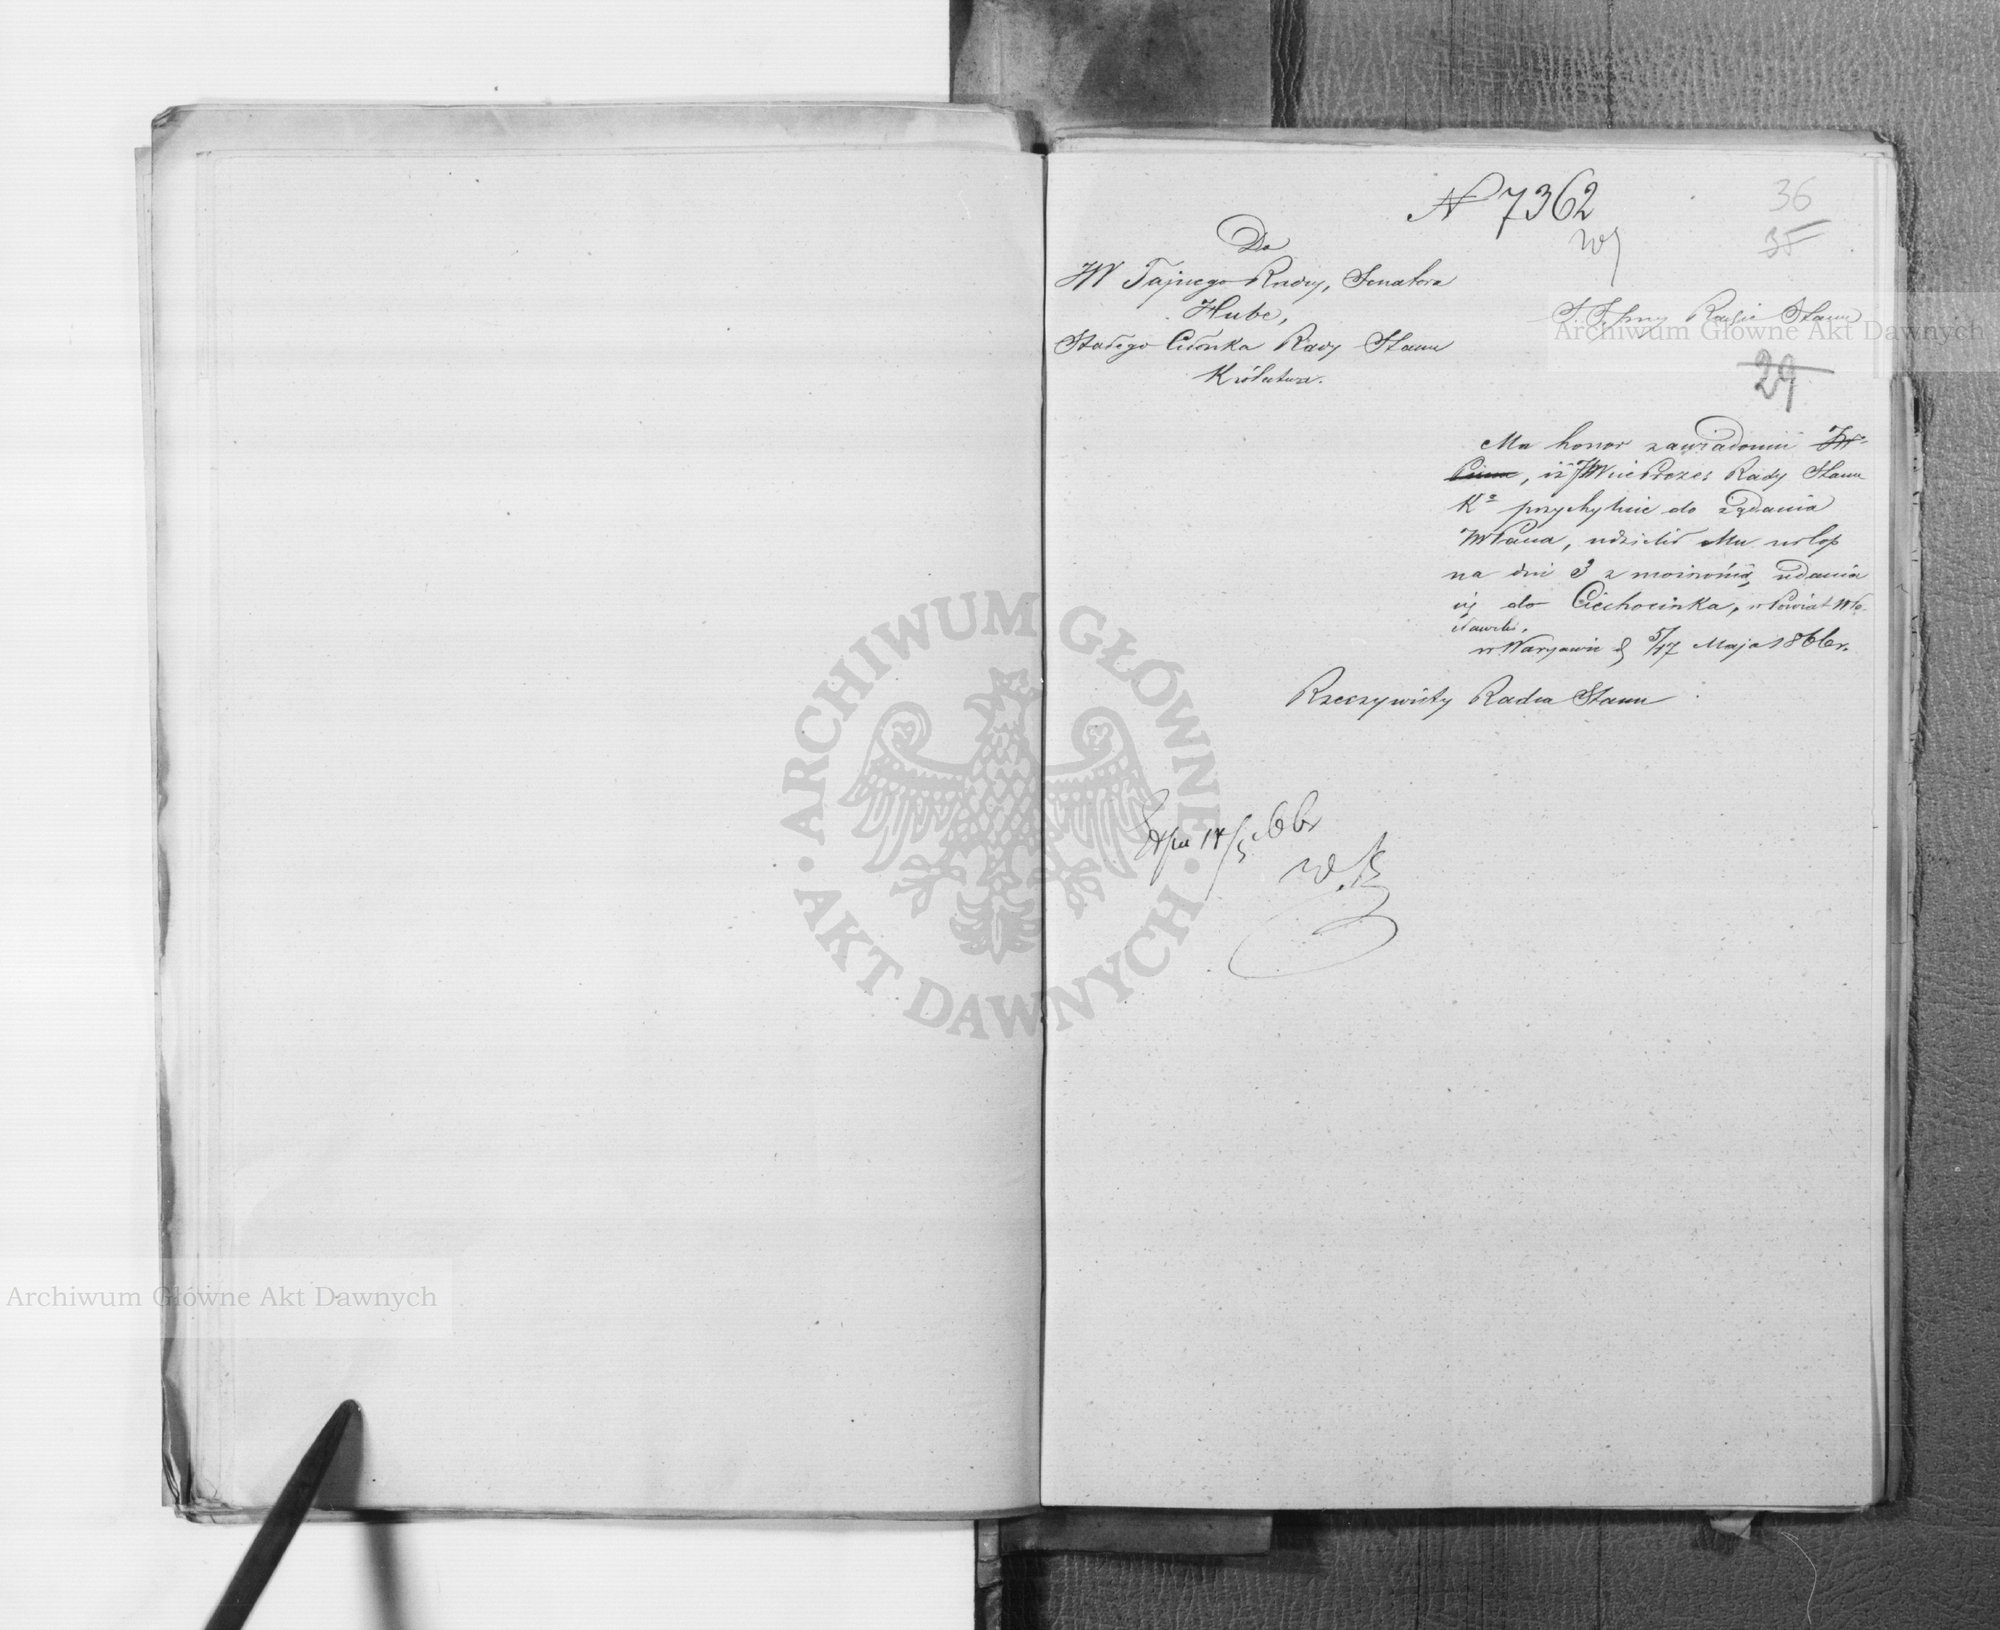 N 7362
36
35
Do
JW Tajnego Radcy, Senatora
Hube,
Stałego Członka Rady Stanu
Królestwa.
przy Radzie Stanu
29
Ma honor zawiadomić JW
Pana, iż JW Vice Prezes Rady Stanu
Kᵃ przychylnie do żądania
JW Pana, udzielił Mu urlop
na dni 3 z możnością udania
się do Ciechocinka, w Powiat Wło-
cławski.
w Warszawie d 5/17 Maja 1866 r.
Rzeczywisty Radca Stanu
Exp 17/5 66 r
Archiwum Główne Akt Dawnych
ARCHIWUM GŁÓWNE
AKT DAWNYCH
Archiwum Główne Akt Dawnych